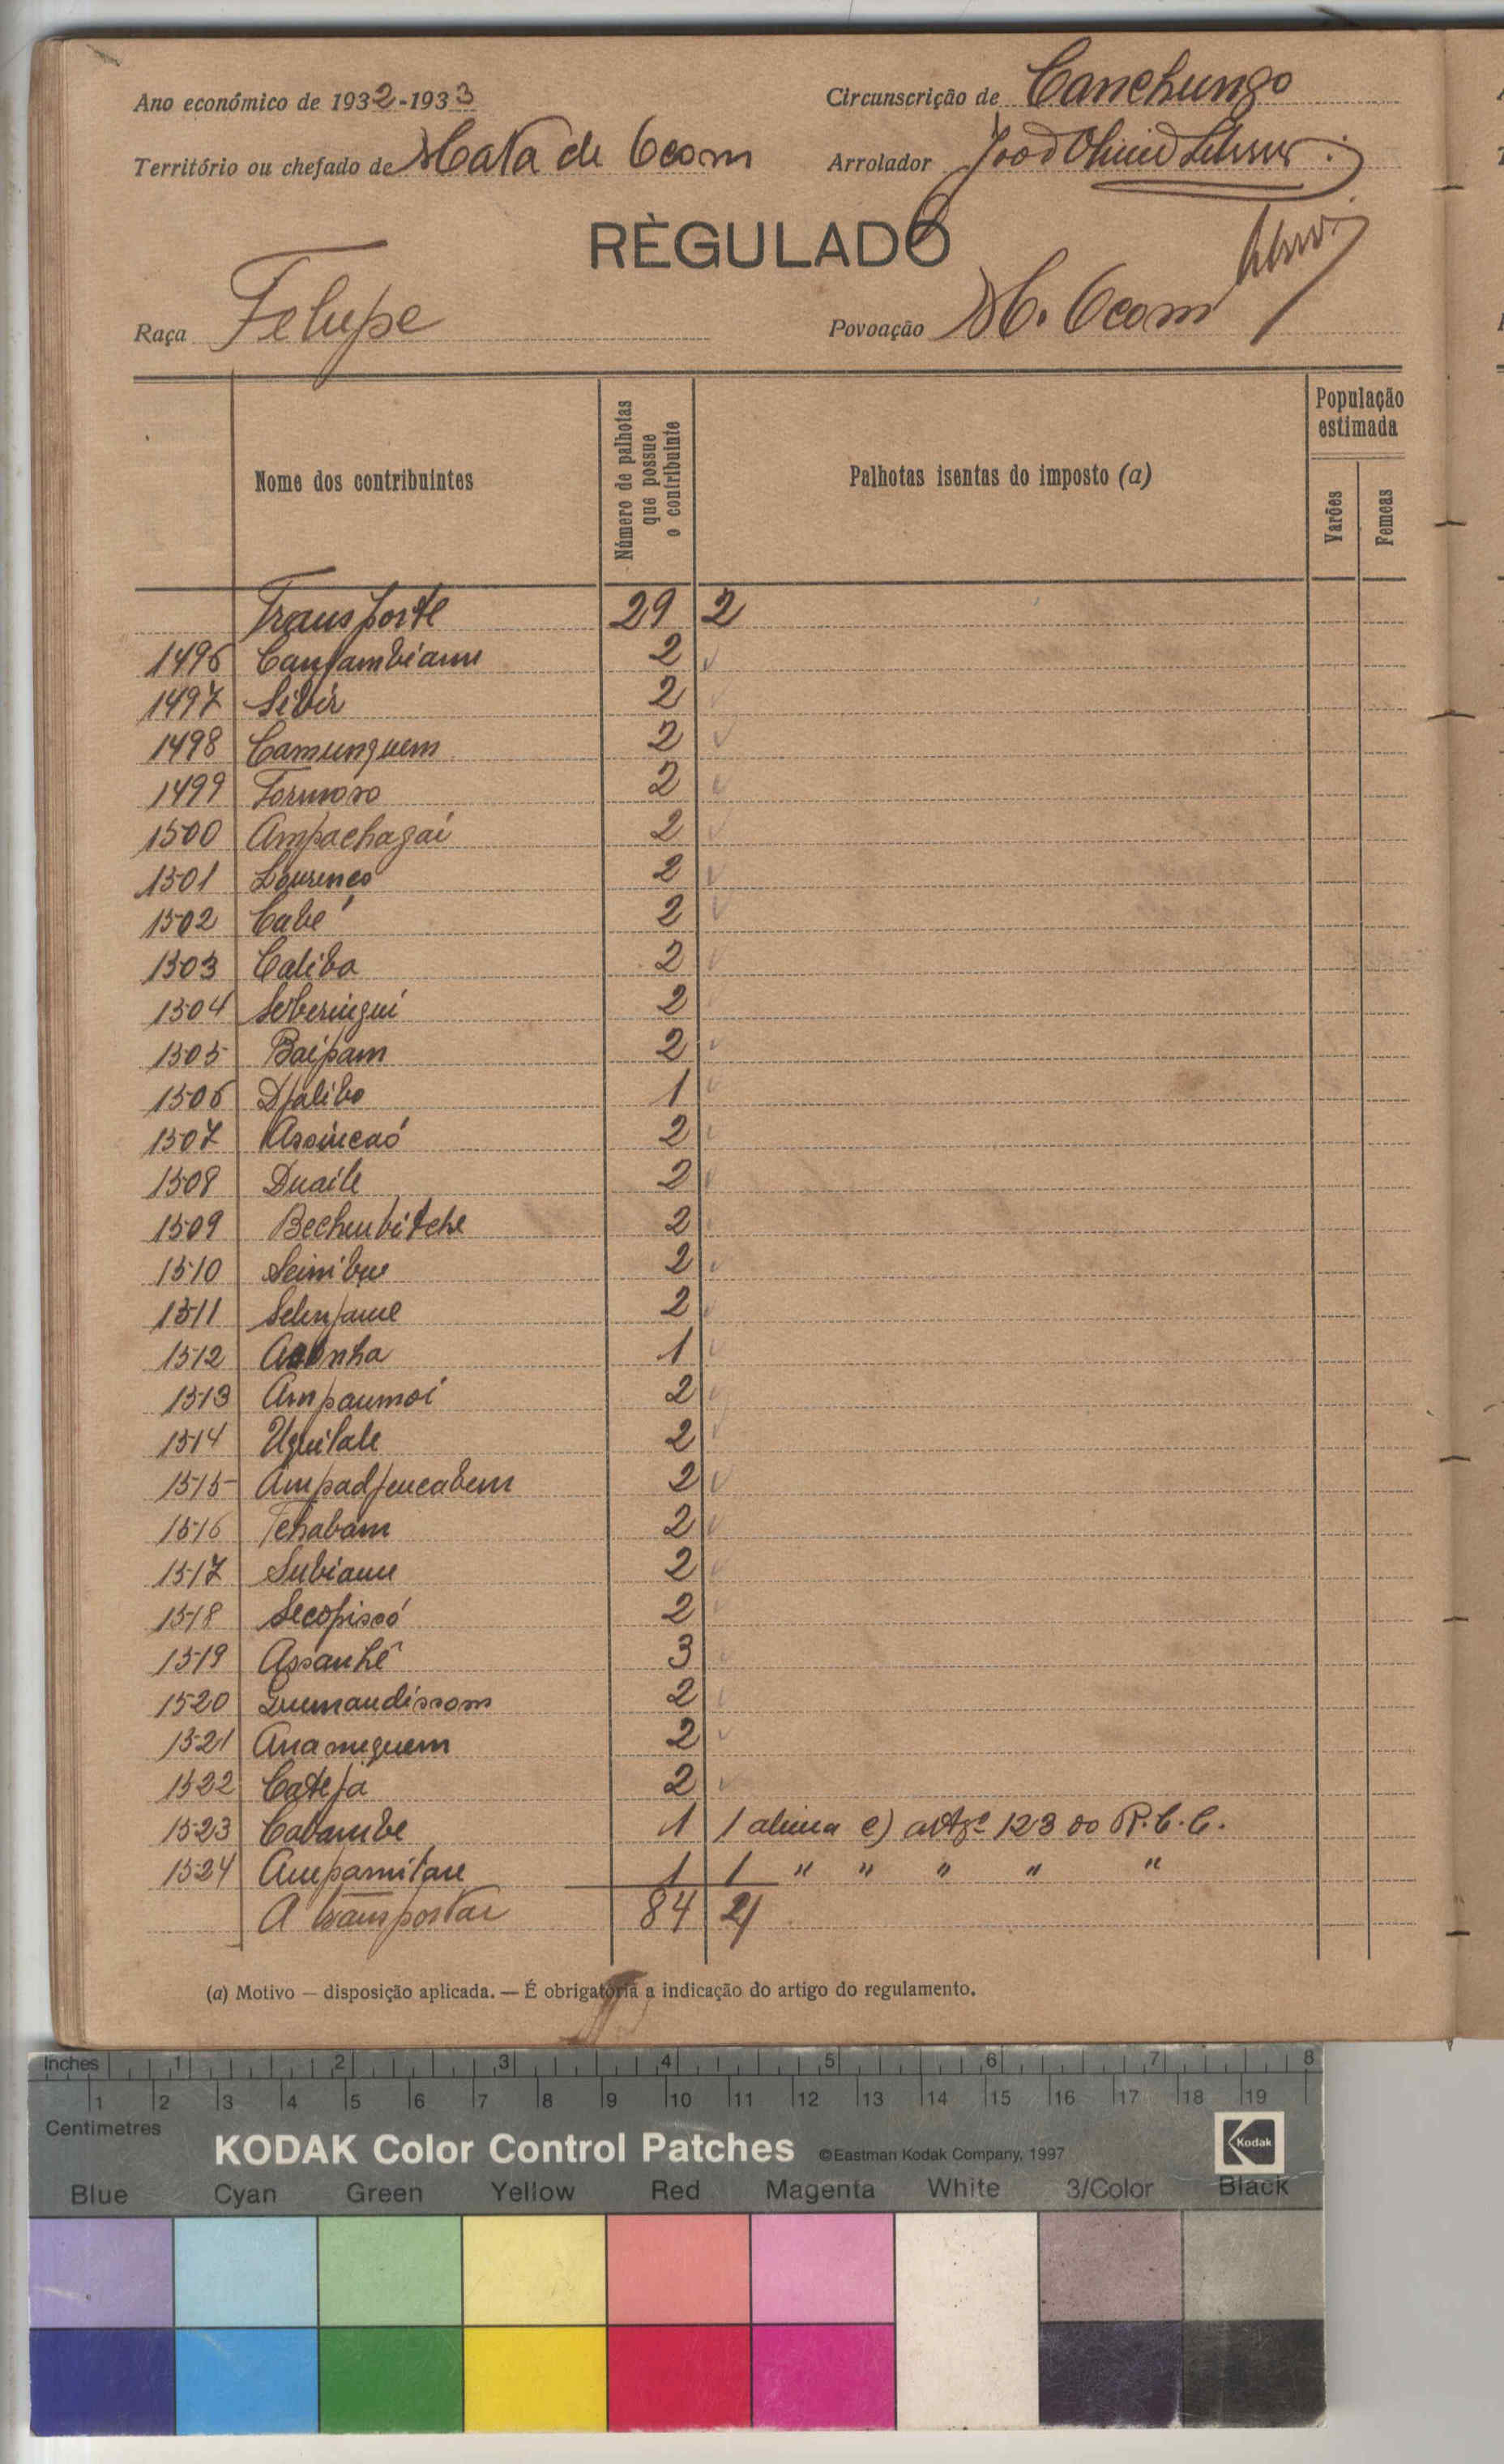 Ano económico de 1932-1933
Circunscrição de Canchungo
Território ou chefado de Mata de Ocom
Arrolador João
RÈGULADO
Raça Felupe
Povoação M. Ocom
Nome dos contribuintes
Número de palhotas que possue o contribuinte
Palhotas isentas do imposto (a)
População estimada
Varões
Femeas
Transporte 29 2
1496 Canjambiame 2
1497 Sibir 2
1498 Camunguem 2
1499 Formoso 2
1500 Ampachagai 2
1501 Lourenço 2
1502 Cabé 2
1503 Caliba 2
1504 2
1505 Baipam 2
1506 Djalibo 1
1507 Assincaó 2
1508 Duaile 2
1509 Bechenbitche 2
1510 2
1511 Selenjame 2
1512 1
1513 Ampaumoi 2
1514 2
1515 Ampadjeucabem 2
1516 Tchabam 2
1517 Subiame 2
1518 2
1519 Assanhê 3
1520 2
1521 2
1522 Cateja 2
1523 Cabambe 1 1 alinea e) artgº 123 do R.C.C.
1524 1 1 " " " " "
A transportar 84
(a) Motivo — disposição aplicada. — É obrigatória a indicação do artigo do regulamento.
Inches 1 2 3 4 5 6 7 8
1 2 3 4 5 6 7 8 9 10 11 12 13 14 15 16 17 18 19
Centimetres
KODAK Color Control Patches ©Eastman Kodak Company, 1997 Kodak
Blue Cyan Green Yellow Red Magenta White 3/Color Black